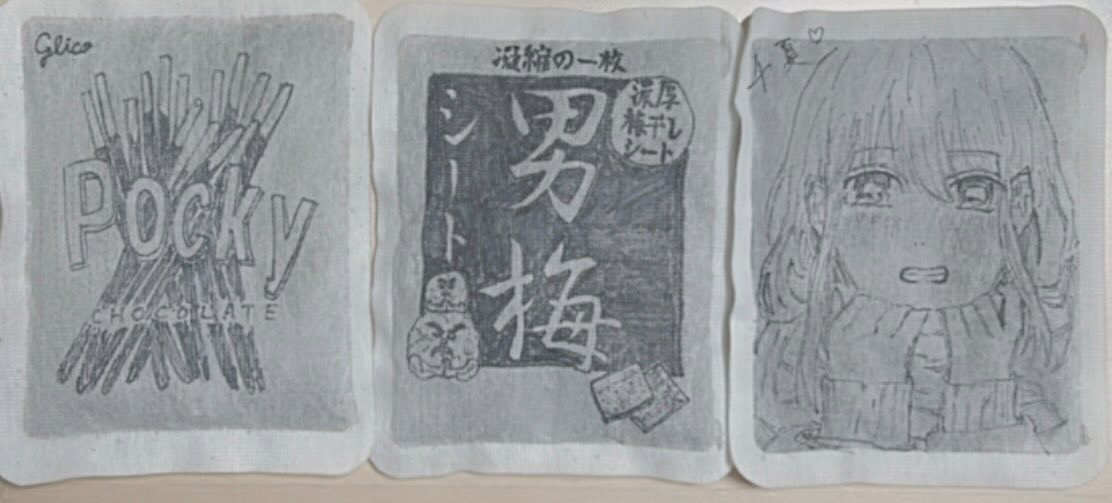 Glico
Pocky
CHOCOLATE
凝縮の一枚
男梅
シート
濃厚
梅干し
シート
千夏♡